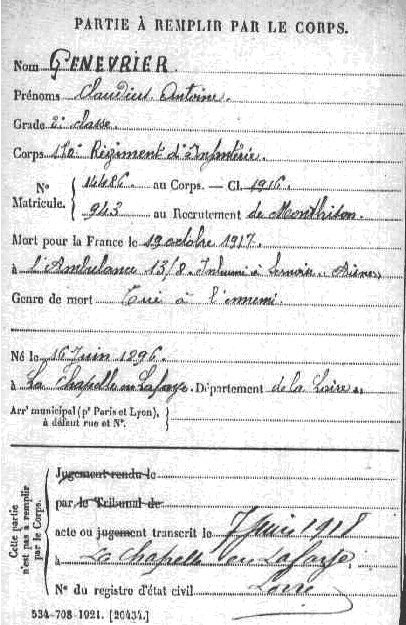 PARTIE À REMPLIR PAR LE CORPS.
Nom GENEVRIER
Prénoms Claudius Antoine.
Grade 2e classe.
Corps 170e Régiment d'Infanterie.
N° Matricule. { 14486 au Corps. — Cl. 1916.
943 au Recrutement de Montbrison
Mort pour la France le 19 octobre 1917.
à l'Ambulance 13/8. Inhumé à (Aisne)
Genre de mort Tué à l'ennemi.
Né le 16 Juin 1896.
à La Chapelle en Lafaye. Département de la Loire
Arrt municipal (pr Paris et Lyon), à défaut rue et N°. {
Cette partie n'est pas à remplir par le Corps.
Jugement rendu le
par le Tribunal de
acte ou jugement transcrit le 7 Juin 1918
à La Chapelle en Lafaye
N° du registre d'état civil Loire
534-708-1921. [26434.]